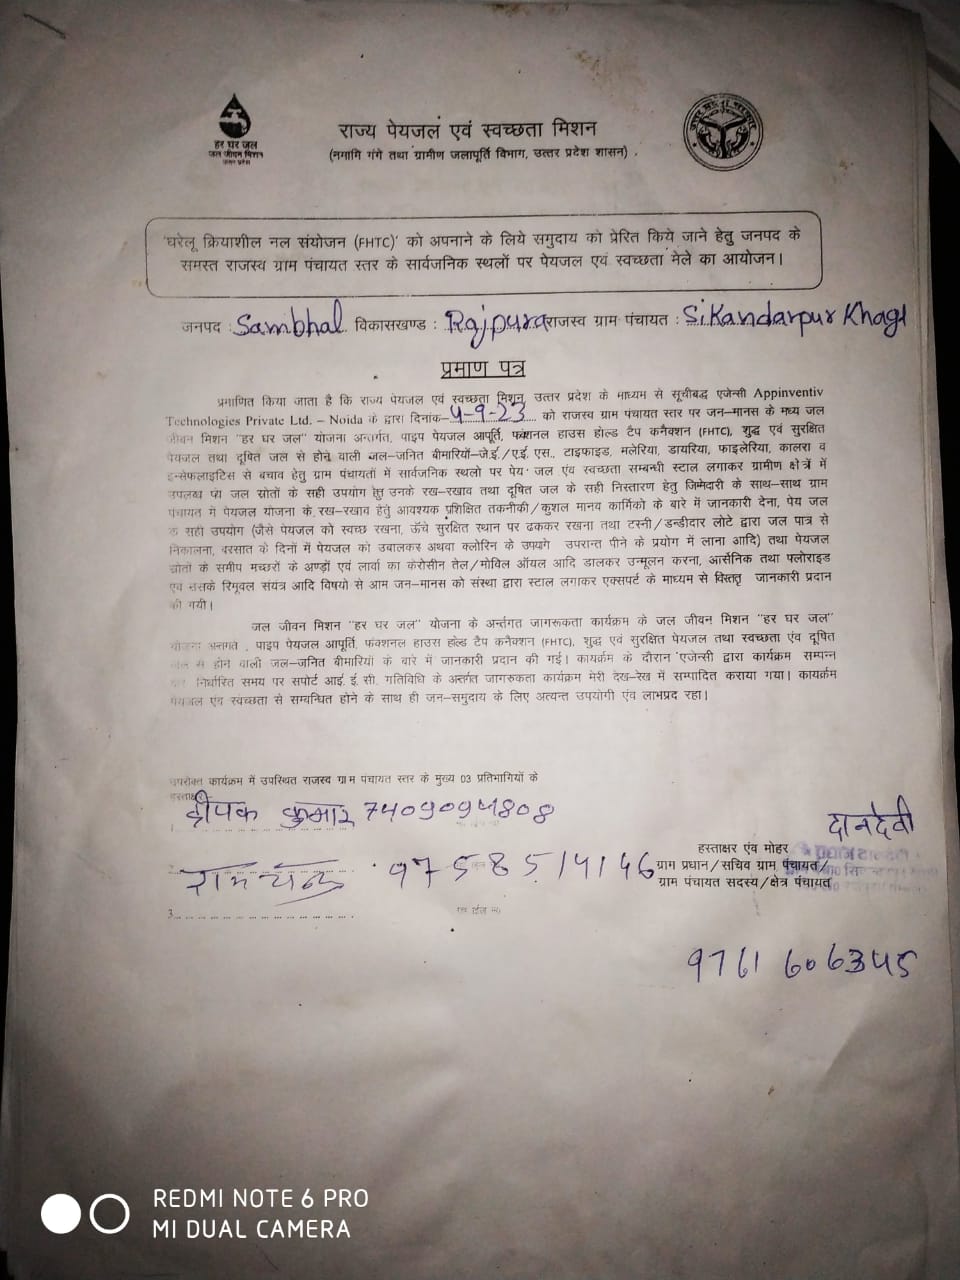 हर घर जल
जल जीवन मिशन
उत्तर प्रदेश
राज्य पेयजल एवं स्वच्छता मिशन
(नमामि गंगे तथा ग्रामीण जलापूर्ति विभाग, उत्तर प्रदेश शासन)
'घरेलू क्रियाशील नल संयोजन (FHTC)' को अपनाने के लिये समुदाय को प्रेरित किये जाने हेतु जनपद के
समस्त राजस्व ग्राम पंचायत स्तर के सार्वजनिक स्थलों पर पेयजल एवं स्वच्छता मेले का आयोजन।
जनपद : Sambhal विकासखण्ड : Rajpura राजस्व ग्राम पंचायत : Sikandarpur Khagi
प्रमाण पत्र
प्रमाणित किया जाता है कि राज्य पेयजल एवं स्वच्छता मिशन, उत्तर प्रदेश के माध्यम से सूचीबद्ध एजेन्सी Appinventiv
Technologies Private Ltd. – Noida के द्वारा दिनांक– 4-9-23 को राजस्व ग्राम पंचायत स्तर पर जन–मानस के मध्य जल
जीवन मिशन "हर घर जल" योजना अन्तर्गत, पाइप पेयजल आपूर्ति, फंक्शनल हाउस होल्ड टैप कनैक्शन (FHTC), शुद्ध एवं सुरक्षित
पेयजल तथा दूषित जल से होने वाली जल–जनित बीमारियाँ–जे.ई./ए.ई. एस., टाइफाइड, मलेरिया, डायरिया, फाइलेरिया, कालरा व
इन्सेफलाइटिस से बचाव हेतु ग्राम पंचायतों में सार्वजनिक स्थलो पर पेय जल एंव स्वच्छता सम्बन्धी स्टाल लगाकर ग्रामीण क्षेत्रों में
उपलब्ध पेय जल स्रोतों के सही उपयोग हेतु उनके रख–रखाव तथा दूषित जल के सही निस्तारण हेतु जिम्मेदारी के साथ–साथ ग्राम
पंचायत में पेयजल योजना के रख–रखाव हेतु आवश्यक प्रशिक्षित तकनीकी/कुशल मानव कार्मिको के बारे में जानकारी देना, पेय जल
के सही उपयोग (जैसे पेयजल को स्वच्छ रखना, ऊँचे सुरक्षित स्थान पर ढककर रखना तथा टस्नी/डन्डीदार लोटे द्वारा जल पात्र से
निकालना, बरसात के दिनों में पेयजल को उबालकर अथवा क्लोरिन के उपयोग उपरान्त पीने के प्रयोग में लाना आदि) तथा पेयजल
स्रोतो के समीप मच्छरों के अण्डों एवं लार्वा का केरोसीन तेल/मोविल ऑयल आदि डालकर उन्मूलन करना, आर्सेनिक तथा फ्लोराइड
एवं उसके रिमूवल संयंत्र आदि विषयो से आम जन–मानस को संस्था द्वारा स्टाल लगाकर एक्सपर्ट के माध्यम से विस्तृत जानकारी प्रदान
की गयी।
जल जीवन मिशन "हर घर जल" योजना के अर्न्तगत जागरूकता कार्यक्रम के जल जीवन मिशन "हर घर जल"
योजना अन्तगते , पाइप पेयजल आपूर्ति, फंक्शनल हाउस होल्ड टैप कनैक्शन (FHTC), शुद्ध एवं सुरक्षित पेयजल तथा स्वच्छता एंव दूषित
जल से होने वाली जल–जनित बीमारियों के बारे में जानकारी प्रदान की गई। कार्यक्रम के दौरान एजेन्सी द्वारा कार्यक्रम सम्पन्न
निर्धारित समय पर सपोर्ट आई. ई. सी. गतिविधि के अर्न्तगत जागरूकता कार्यक्रम मेरी देख–रेख में सम्पादित कराया गया। कार्यक्रम
पेयजल एंव स्वच्छता से सम्बन्धित होने के साथ ही जन–समुदाय के लिए अत्यन्त उपयोगी एंव लाभप्रद रहा।
उपरोक्त कार्यक्रम में उपस्थित राजस्व ग्राम पंचायत स्तर के मुख्य 03 प्रतिभागियों के
हस्ताक्षर
दीपक कुमार 7409094808
दानदेवी
हस्ताक्षर एंव मोहर
रामचन्द्र 9758514146 ग्राम प्रधान/सचिव ग्राम पंचायत/
ग्राम पंचायत सदस्य/क्षेत्र पंचायत
3
9761606345
REDMI NOTE 6 PRO
MI DUAL CAMERA